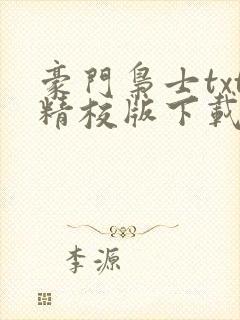 豪門梟士txt
精校版下載
李源